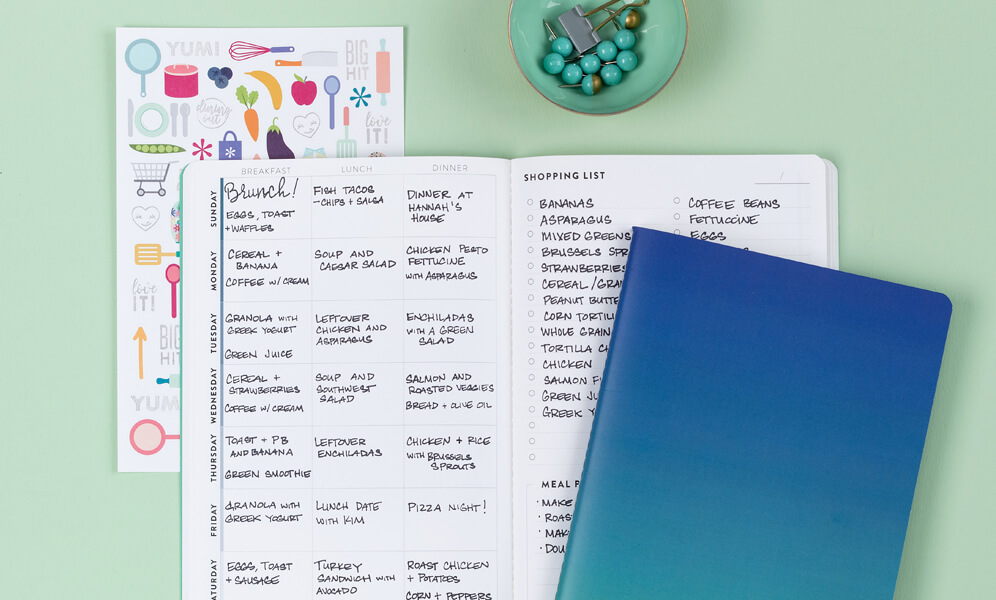 YUM!
BIG
HIT
dining
out
love
IT!
love
IT!
BIG
HIT
YUM
BREAKFAST LUNCH DINNER
SUNDAY
Brunch!
EGGS, TOAST
+ WAFFLES
FISH TACOS
- CHIPS + SALSA
DINNER AT
HANNAH'S
HOUSE
MONDAY
CEREAL +
BANANA
COFFEE W/ CREAM
SOUP AND
CAESAR SALAD
CHICKEN PESTO
FETTUCINE
WITH ASPARAGUS
TUESDAY
GRANOLA WITH
GREEK YOGURT
GREEN JUICE
LEFTOVER
CHICKEN AND
ASPARAGUS
ENCHILADAS
WITH A GREEN
SALAD
WEDNESDAY
CEREAL +
STRAWBERRIES
COFFEE W/ CREAM
SOUP AND
SOUTHWEST
SALAD
SALMON AND
ROASTED VEGGIES
BREAD + OLIVE OIL
THURSDAY
TOAST + PB
AND BANANA
GREEN SMOOTHIE
LEFTOVER
ENCHILADAS
CHICKEN + RICE
WITH BRUSSELS
SPROUTS
FRIDAY
GRANOLA WITH
GREEK YOGURT
LUNCH DATE
WITH KIM
PIZZA NIGHT!
ATURDAY
EGGS, TOAST
+ SAUSAGE
TURKEY
SANDWICH WITH
AVOCADO
ROAST CHICKEN
+ POTATOES
CORN + PEPPERS
SHOPPING LIST
/
BANANAS
ASPARAGUS
MIXED GREENS
BRUSSELS SPR
STRAWBERRIES
CEREAL/GRAN
PEANUT BUTTE
CORN TORTILL
WHOLE GRAIN
TORTILLA CH
CHICKEN
SALMON F
GREEN JU
GREEK Y
COFFEE BEANS
FETTUCCINE
EGGS
MEAL P
· MAKE
· ROAS
· MAK
· DOU